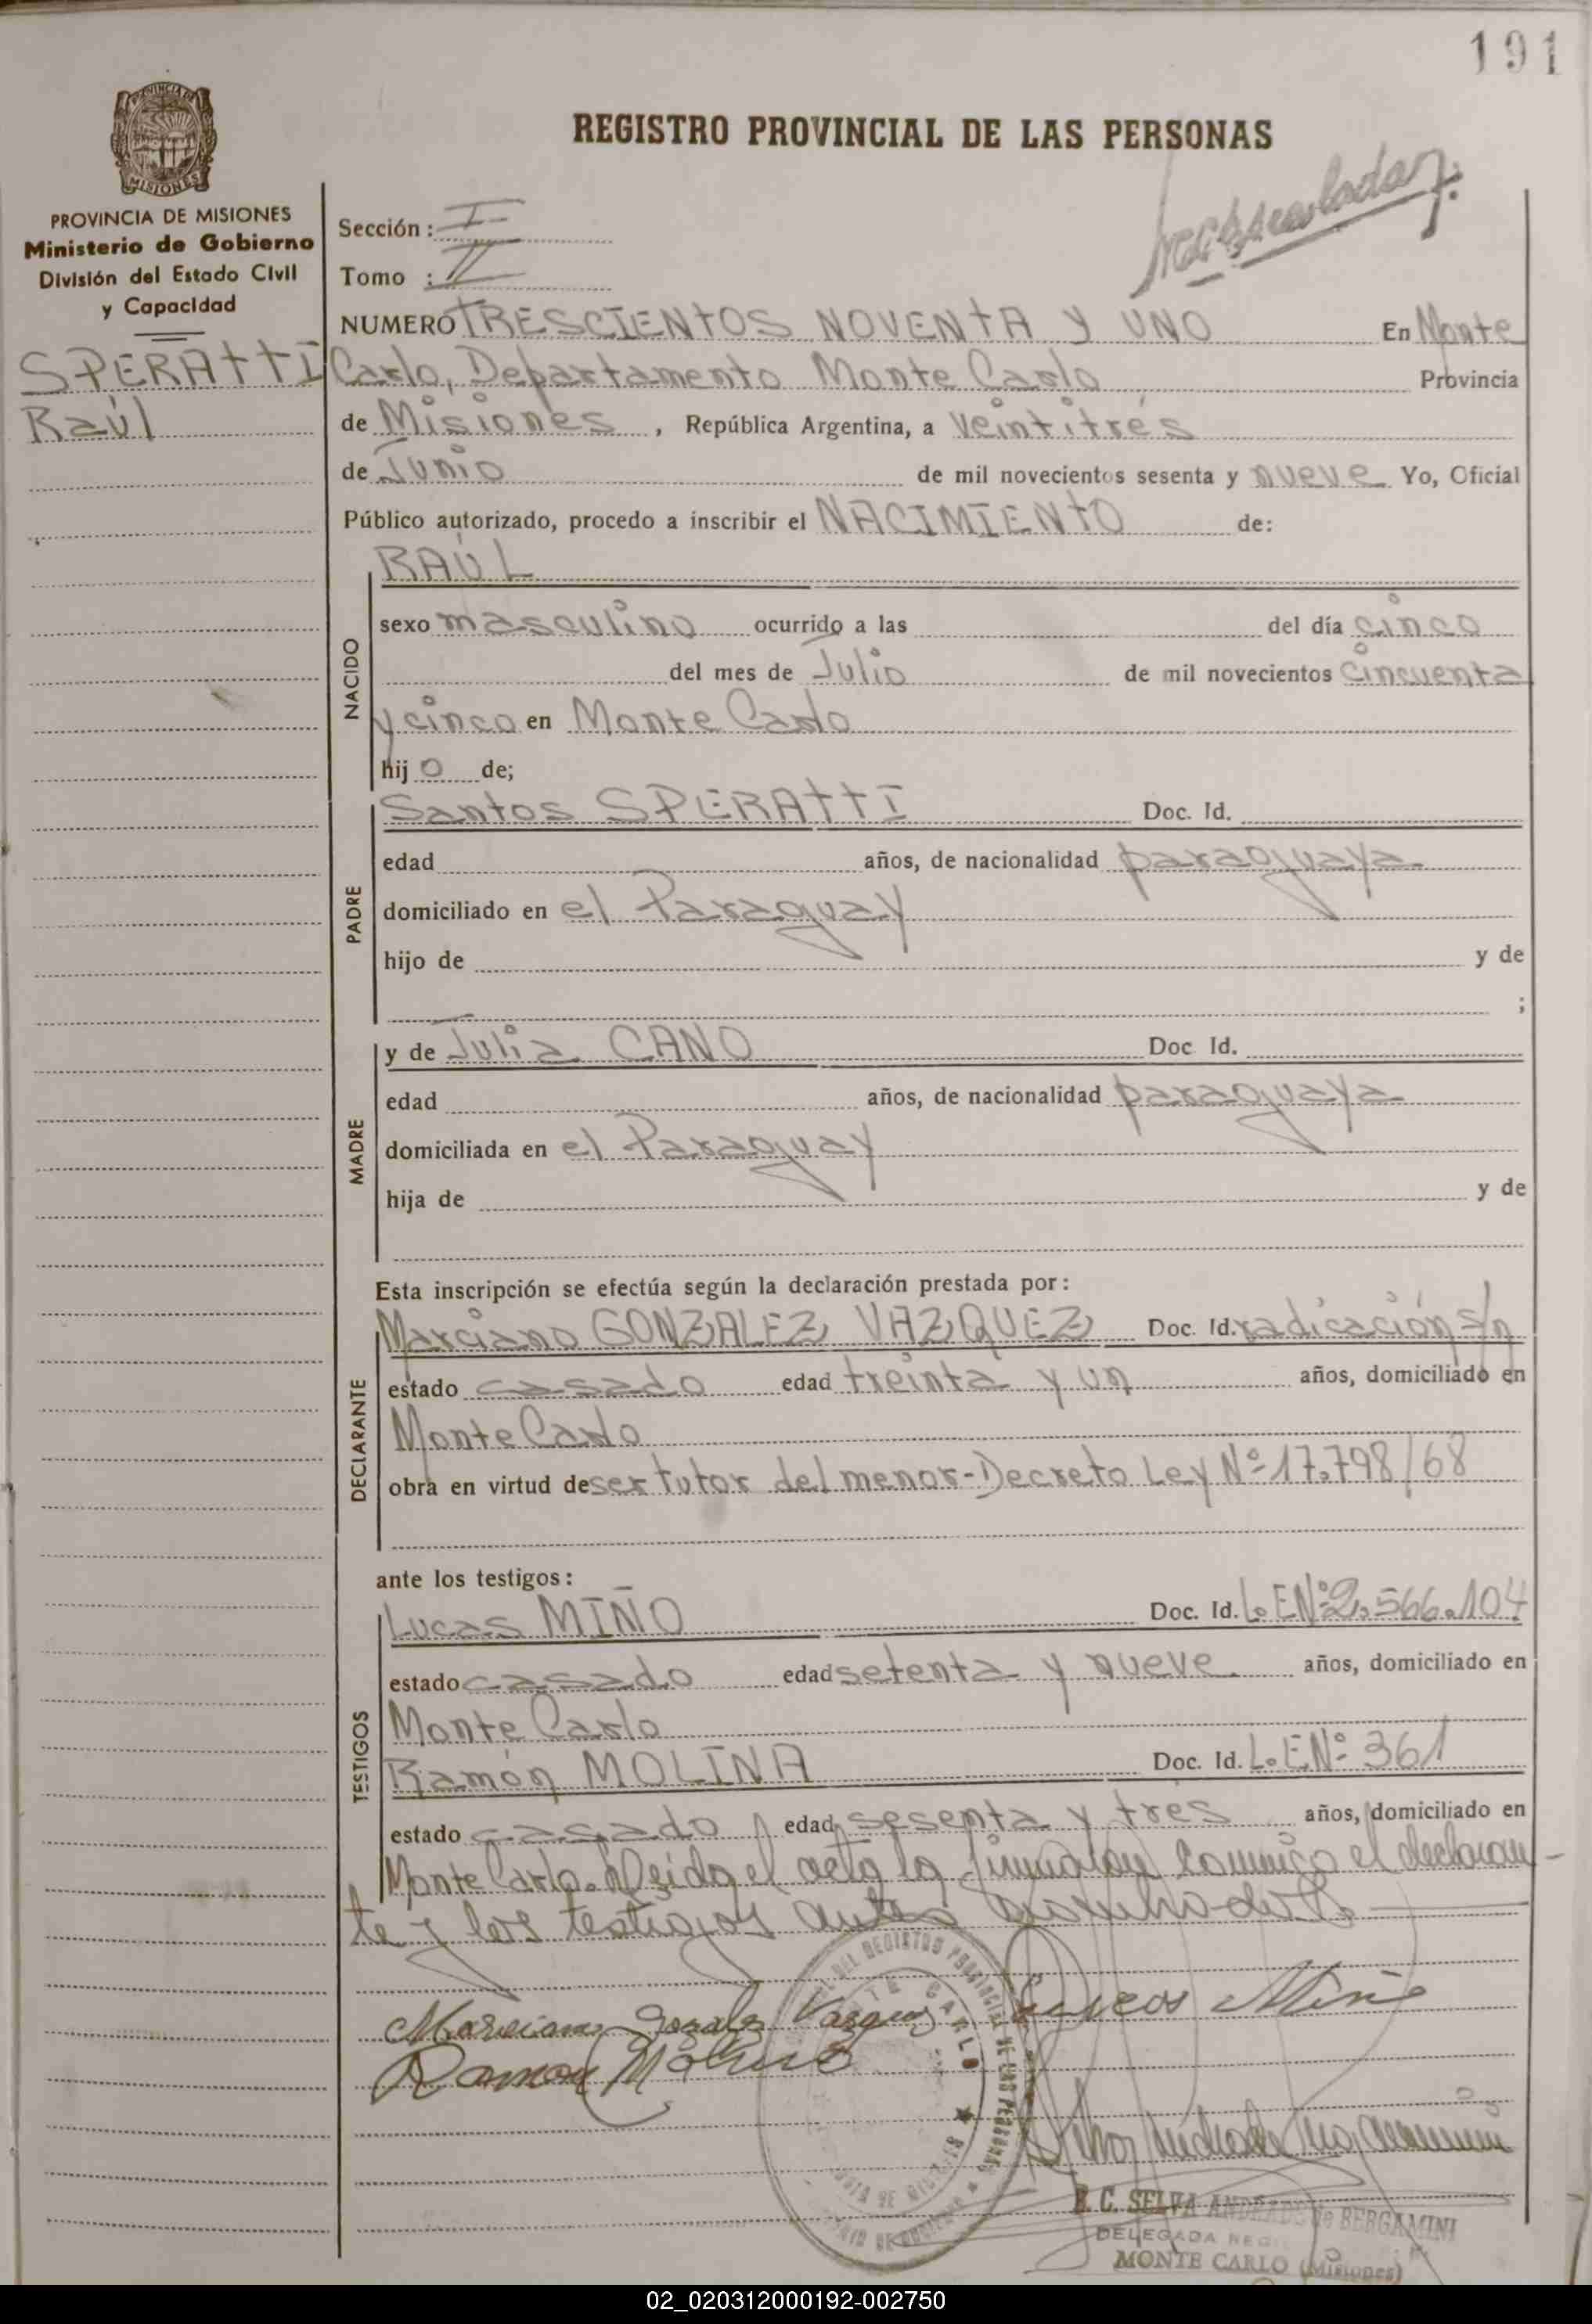 191
PROVINCIA DE
MISIONES
REGISTRO PROVINCIAL DE LAS PERSONAS
PROVINCIA DE MISIONES
Ministerio de Gobierno
División del Estado Civil
y Capacidad
SPERATTI
Raúl
Sección : I
Tomo : II
NUMERO TRESCIENTOS NOVENTA Y UNO En Monte
Carlo, Departamento Monte Carlo Provincia
de Misiones , República Argentina, a veintitrés
de Junio de mil novecientos sesenta y nueve Yo, Oficial
Público autorizado, procedo a inscribir el NACIMIENTO de:
NACIDO
RAÚL
sexo masculino ocurrido a las del día cinco
del mes de Julio de mil novecientos cincuenta
y cinco en Monte Carlo
hij o de;
PADRE
Santos SPERATTI Doc. Id.
edad años, de nacionalidad paraguaya
domiciliado en el Paraguay
hijo de y de
;
MADRE
y de Julia CANO Doc Id.
edad años, de nacionalidad paraguaya
domiciliada en el Paraguay
hija de y de
Esta inscripción se efectúa según la declaración prestada por:
DECLARANTE
Marciano GONZALEZ VAZQUEZ Doc. Id. radicación s/n
estado casado edad treinta y un años, domiciliado en
Monte Carlo
obra en virtud de ser tutor del menor-Decreto Ley Nº 17.798/68
ante los testigos:
TESTIGOS
Lucas MIÑO Doc. Id. L.E.Nº 2.566.104
estado casado edad setenta y nueve años, domiciliado en
Monte Carlo
Ramón MOLINA Doc. Id. L.E.Nº 361
estado casado edad sesenta y tres años, domiciliado en
Monte Carlo. Leida el acta la firman conmigo el declaran-
te y los testigos antes
Marciano Gonzalez Vazquez Lucas Miño
Ramon Molina
DEL REGISTRO PROVINCIAL DE LAS PERSONAS
MONTE CARLO
B. C. SELVA ANDRADE de BERGAMINI
DELEGADA
MONTE CARLO (Misiones)
02_020312000192-002750